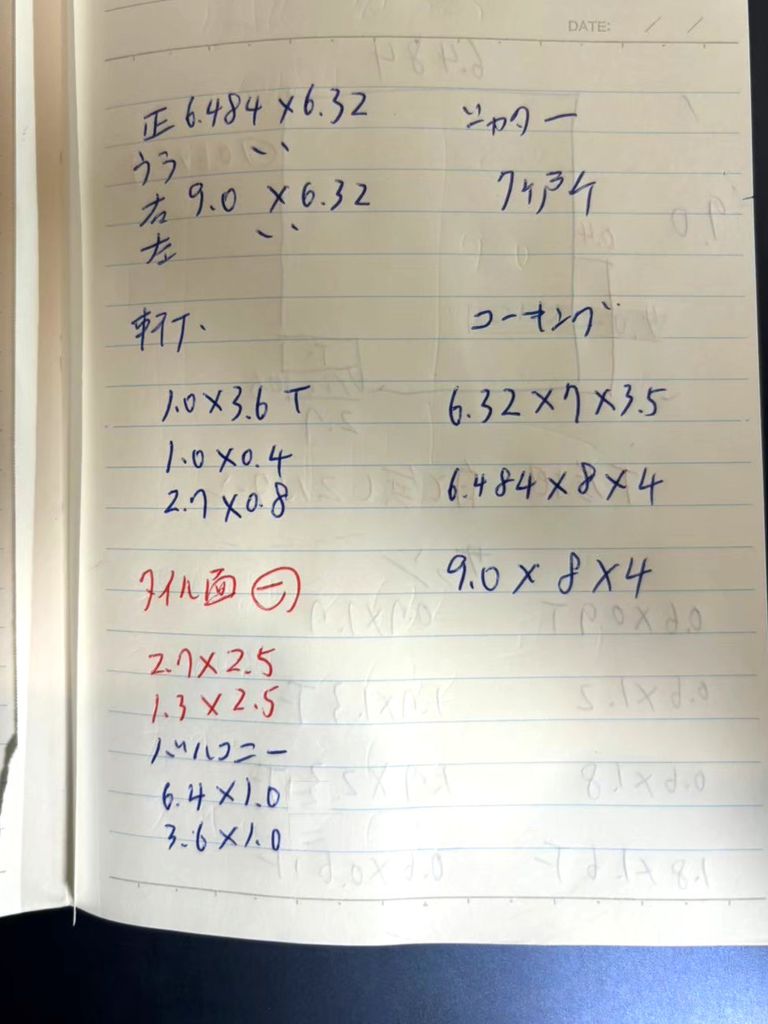 DATE: / /
正 6.484×6.32
うう 〃
右 9.0 ×6.32
左 〃
軒T.
1.0×3.6 T
1.0×0.4
2.7×0.8
タイル面 ㊀
2.7×2.5
1.3×2.5
バルコニー
6.4×1.0
3.6×1.0
シャター
コーキング
6.32×7×3.5
6.484×8×4
9.0×8×4